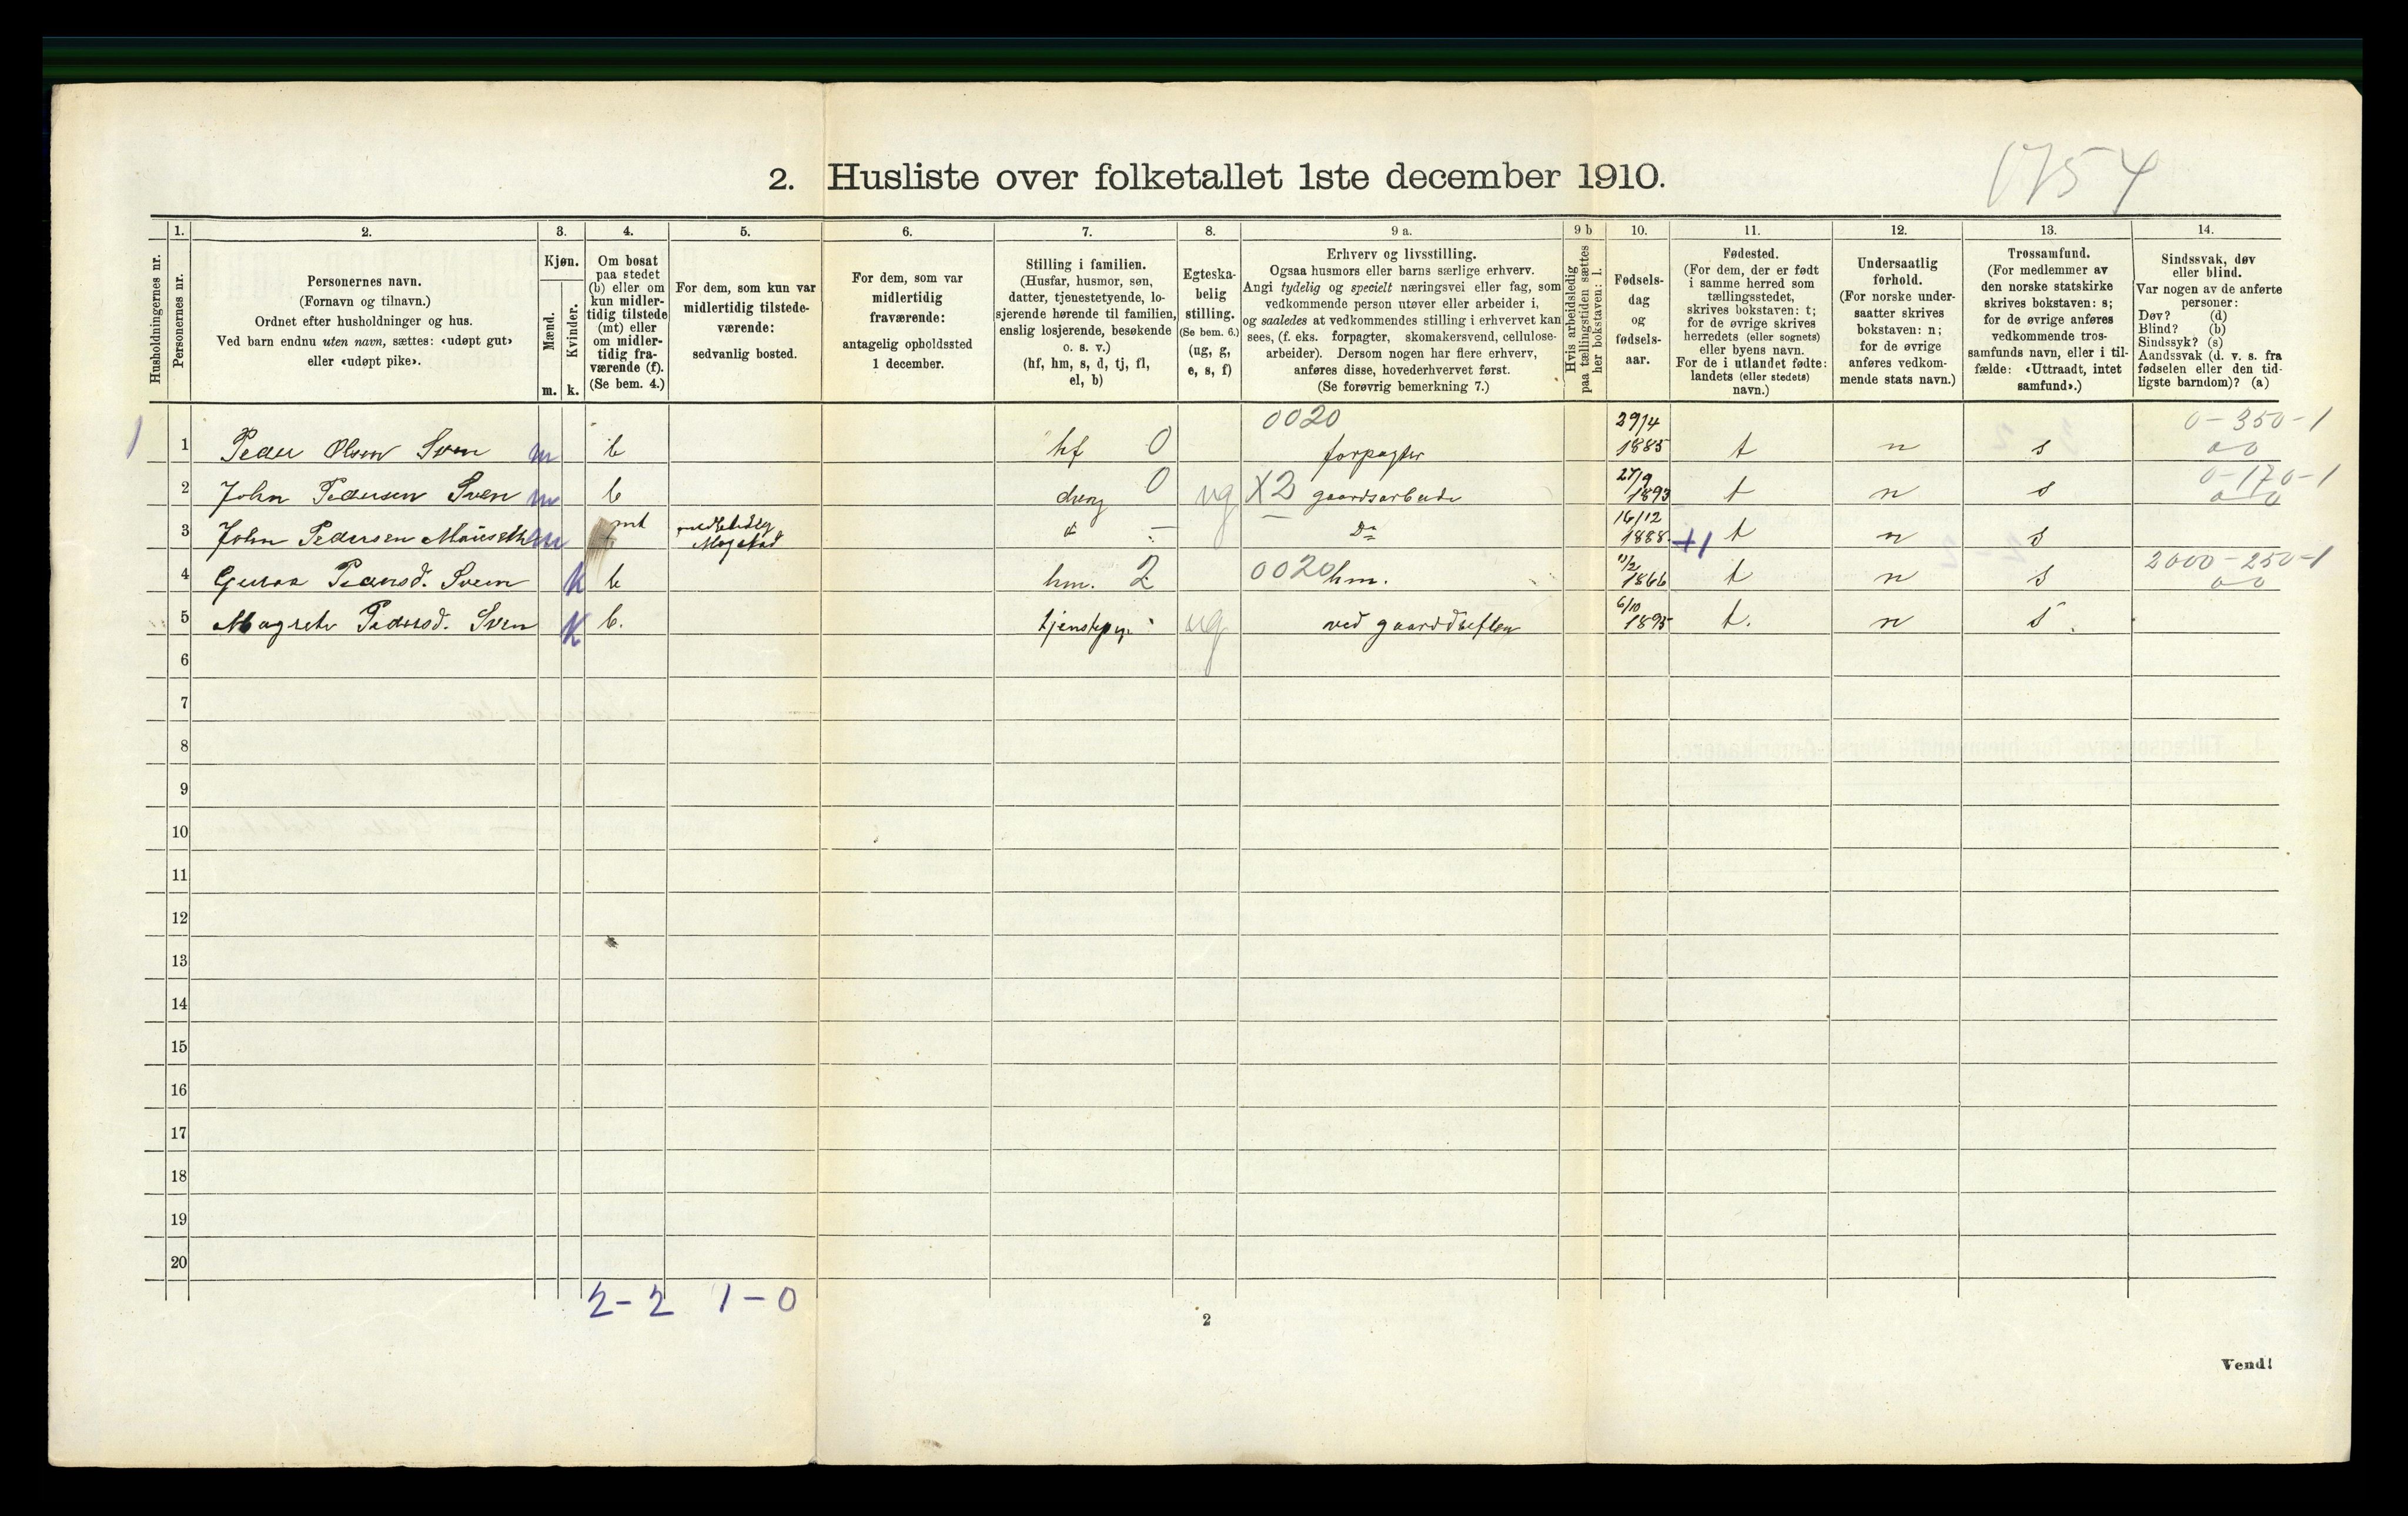 1754
2. Husliste over folketallet 1ste december 1910.
Husholdningernes nr.
1.
Personernes nr.
2.
Personernes navn.
(Fornavn og tilnavn.)
Ordnet efter husholdninger og hus.
Ved barn endnu uten navn, sættes: «udøpt gut»
eller «udøpt pike».
3.
Kjøn.
Mænd.
Kvinder.
m. k.
4.
Om bosat
paa stedet
(b) eller om
kun midler-
tidig tilstede
(mt) eller
om midler-
tidig fra-
værende (f).
(Se bem. 4.)
5.
For dem, som kun var
midlertidig tilstede-
værende:
sedvanlig bosted.
6.
For dem, som var
midlertidig
fraværende:
antagelig opholdssted
1 december.
7.
Stilling i familien.
(Husfar, husmor, søn,
datter, tjenestetyende, lo-
sjerende hørende til familien,
enslig losjerende, besøkende
o. s. v.)
(hf, hm, s, d, tj, fl,
el, b)
8.
Egteska-
belig
stilling.
(Se bem. 6.)
(ug, g,
e, s, f)
9 a.
Erhverv og livsstilling.
Ogsaa husmors eller barns særlige erhverv.
Angi tydelig og specielt næringsvei eller fag, som
vedkommende person utøver eller arbeider i,
og saaledes at vedkommendes stilling i erhvervet kan
sees, (f. eks. forpagter, skomakersvend, cellulose-
arbeider). Dersom nogen har flere erhverv,
anføres disse, hovederhvervet først.
(Se forøvrig bemerkning 7.)
9 b
Hvis arbeidsledig
paa tællingstiden sættes
her bokstaven: l.
10.
Fødsels-
dag
og
fødsels-
aar.
11.
Fødested.
(For dem, der er født
i samme herred som
tællingsstedet,
skrives bokstaven: t;
for de øvrige skrives
herredets (eller sognets)
eller byens navn.
For de i utlandet fødte:
landets (eller stedets)
navn.)
12.
Undersaatlig
forhold.
(For norske under-
saatter skrives
bokstaven: n;
for de øvrige
anføres vedkom-
mende stats navn.)
13.
Trossamfund.
(For medlemmer av
den norske statskirke
skrives bokstaven: s;
for de øvrige anføres
vedkommende tros-
samfunds navn, eller i til-
fælde: «Uttraadt, intet
samfund».)
14.
Sindssvak, døv
eller blind.
Var nogen av de anførte
personer:
Døv? (d)
Blind? (b)
Sindssyk? (s)
Aandssvak (d. v. s. fra
fødselen eller den tid-
ligste barndom)? (a)
1 1 Peder Olsen Sven m b hf 0 0020 forpagter 29/4 1885 t n s 0-350-1 00
2 John Pedersen Sven m b dreng 0 ug X2 gaardsarbeide 27/9 1893 t n s 0-170-1 00
3 John Pedersen m mt Do 16/12 1888 +1 t n s
4 Pedersd. Sven k b hm. 2 0020 hm. 1866 t n s 2000-250-1 00
5 Magrete Pedersd. Sven k b. ug ved 6/10 1895 t. n s
6
7
8
9
10
11
12
13
14
15
16
17
18
19
20
2-2 1-0
2
Vend!